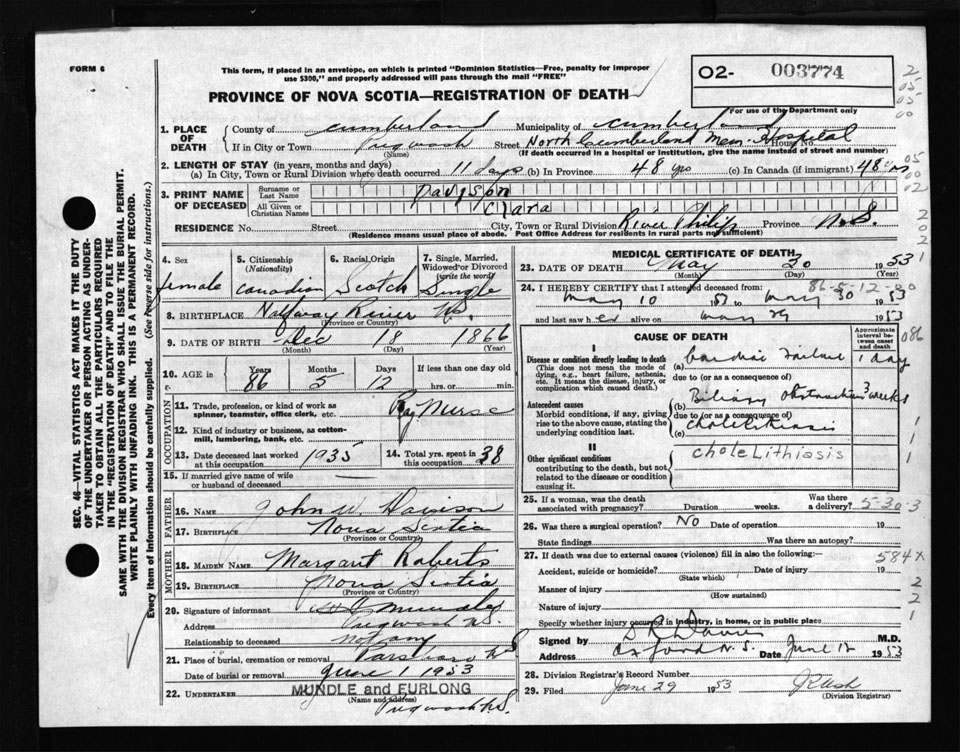 FORM 6
This form, if placed in an envelope, on which is printed "Dominion Statistics—Free, penalty for improper
use $300," and properly addressed will pass through the mail "FREE"
PROVINCE OF NOVA SCOTIA—REGISTRATION OF DEATH
02- 003774
For use of the Department only
1. PLACE OF DEATH
County of Cumberland Municipality of Cumberland
If in City or Town Pugwash Street North Cumberland Mem. Hospital House No.
(Name) (If death occurred in a hospital or institution, give the name instead of street and number)
2. LENGTH OF STAY (in years, months and days)
(a) In City, Town or Rural Division where death occurred 11 days (b) In Province 48 yrs (c) In Canada (if immigrant) 48 yrs
3. PRINT NAME OF DECEASED
Surname or Last Name Davison
All Given or Christian Names Clara
RESIDENCE No. Street City, Town or Rural Division River Philip Province N.S.
(Residence means usual place of abode. Post Office Address for residents in rural parts not sufficient)
4. Sex female
5. Citizenship (Nationality) Canadian
6. Racial Origin Scotch
7. Single, Married, Widowed or Divorced (write the word) Single
8. BIRTHPLACE Halfway River N.S.
(Province or Country)
9. DATE OF BIRTH Dec 18 1866
(Month) (Day) (Year)
10. AGE in Years 86 Months 5 Days 12 If less than one day hrs. or min.
OCCUPATION
11. Trade, profession, or kind of work as spinner, teamster, office clerk, etc. Reg. Nurse
12. Kind of industry or business, as cotton-mill, lumbering, bank, etc.
13. Date deceased last worked at this occupation 1935
14. Total yrs. spent in this occupation 38
15. If married give name of wife or husband of deceased
FATHER
16. NAME John W. Davison
17. BIRTHPLACE Nova Scotia
(Province or Country)
MOTHER
18. MAIDEN NAME Margaret Roberts
19. BIRTHPLACE Nova Scotia
(Province or Country)
20. Signature of informant
Address Pugwash N.S.
Relationship to deceased not any
21. Place of burial, cremation or removal Parrsboro N.S.
Date of burial or removal June 1 1953
22. UNDERTAKER MUNDLE and FURLONG
(Name and address) Pugwash N.S.
MEDICAL CERTIFICATE OF DEATH
23. DATE OF DEATH May 30 1953
(Month) (Day)
24. I HEREBY CERTIFY that I attended deceased from: 86-5-12-30
May 10 1953 to May 30 1953
and last saw her alive on May 29 1953
CAUSE OF DEATH
Approximate interval between onset and death
I
Disease or condition directly leading to death
(This does not mean the mode of dying, e.g., heart failure, asthenia, etc. It means the disease, injury, or complication which caused death.)
(a) Cardiac Failure 1 day
due to (or as a consequence of)
Antecedent causes
Morbid conditions, if any, giving rise to the above cause, stating the underlying condition last.
(b) Biliary Obstruction 3 weeks
due to (or as a consequence of)
(c) Cholelithiasis
II
Other significant conditions
contributing to the death, but not related to the disease or condition causing it.
Cholelithiasis
25. If a woman, was the death associated with pregnancy? Duration weeks. Was there a delivery? 5-30-3
26. Was there a surgical operation? No Date of operation 19
State findings Was there an autopsy?
27. If death was due to external causes (violence) fill in also the following:— 584x
Accident, suicide or homicide? Date of injury 19
(State which)
Manner of injury
(How sustained)
Nature of injury
Specify whether injury occurred in industry, in home, or in public place
Signed by M.D.
Address Oxford N.S. Date June 12 1953
28. Division Registrar's Record Number
29. Filed June 29 1953
(Division Registrar)
SEC. 46—VITAL STATISTICS ACT MAKES IT THE DUTY
OF THE UNDERTAKER OR PERSON ACTING AS UNDER-
TAKER TO OBTAIN ALL THE PARTICULARS REQUIRED
IN THE "REGISTRATION OF DEATH" AND TO FILE THE
SAME WITH THE DIVISION REGISTRAR WHO SHALL ISSUE THE BURIAL PERMIT.
WRITE PLAINLY WITH UNFADING INK. THIS IS A PERMANENT RECORD.
Every item of information should be carefully supplied. (See reverse side for instructions.)
2
05
05
00
05
00
02
2
0
2
1
086
1
1
1
2
2
1